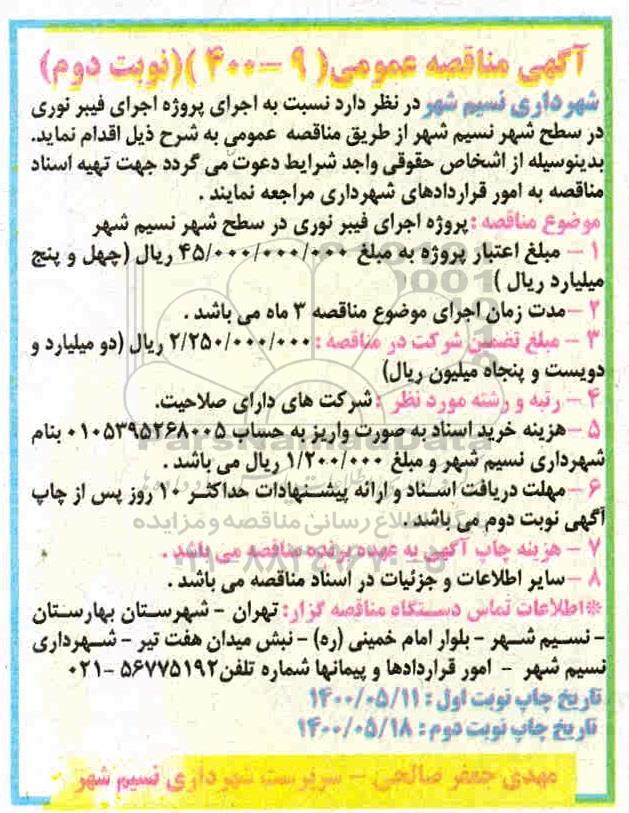 آگهی مناقصه عمومی( ۹ -۴۰۰ )(نوبت دوم)
شهرداری نسیم شهر در نظر دارد نسبت به اجرای پروژه اجرای فیبر نوری
در سطح شهر نسیم شهر از طریق مناقصه عمومی به شرح ذیل اقدام نماید.
بدینوسیله از اشخاص حقوقی واجد شرایط دعوت می گردد جهت تهیه اسناد
مناقصه به امور قراردادهای شهرداری مراجعه نمایند .
موضوع مناقصه : پروژه اجرای فیبر نوری در سطح شهر نسیم شهر
۱ - مبلغ اعتبار پروژه به مبلغ ۴۵/۰۰۰/۰۰۰/۰۰۰ ریال (چهل و پنج
میلیارد ریال )
۲ -مدت زمان اجرای موضوع مناقصه ۳ ماه می باشد .
۳ - مبلغ تضمین شرکت در مناقصه : ۲/۲۵۰/۰۰۰/۰۰۰ ریال (دو میلیارد و
دویست و پنجاه میلیون ریال)
۴ - رتبه و رشته مورد نظر : شرکت های دارای صلاحیت.
۵ -هزینه خرید اسناد به صورت واریز به حساب ۰۱۰۵۳۹۵۲۶۸۰۰۵ بنام
شهرداری نسیم شهر و مبلغ ۱/۲۰۰/۰۰۰ ریال می باشد .
۶ -مهلت دریافت اسناد و ارائه پیشنهادات حداکثر ۱۰ روز پس از چاپ
آگهی نوبت دوم می باشد .
۷ - هزینه چاپ آگهی به عهده برنده مناقصه می باشد .
۸ -سایر اطلاعات و جزئیات در اسناد مناقصه می باشد .
*اطلاعات تماس دستگاه مناقصه گزار: تهران - شهرستان بهارستان
- نسیم شهر - بلوار امام خمینی (ره) - نبش میدان هفت تیر - شهرداری
نسیم شهر - امور قراردادها و پیمانها شماره تلفن ۵۶۷۷۵۱۹۲ -۰۲۱
تاریخ چاپ نوبت اول : ۱۴۰۰/۰۵/۱۱
تاریخ چاپ نوبت دوم : ۱۴۰۰/۰۵/۱۸
مهدی جعفر صالحی - سرپرست شهرداری نسیم شهر
ParsNamadData